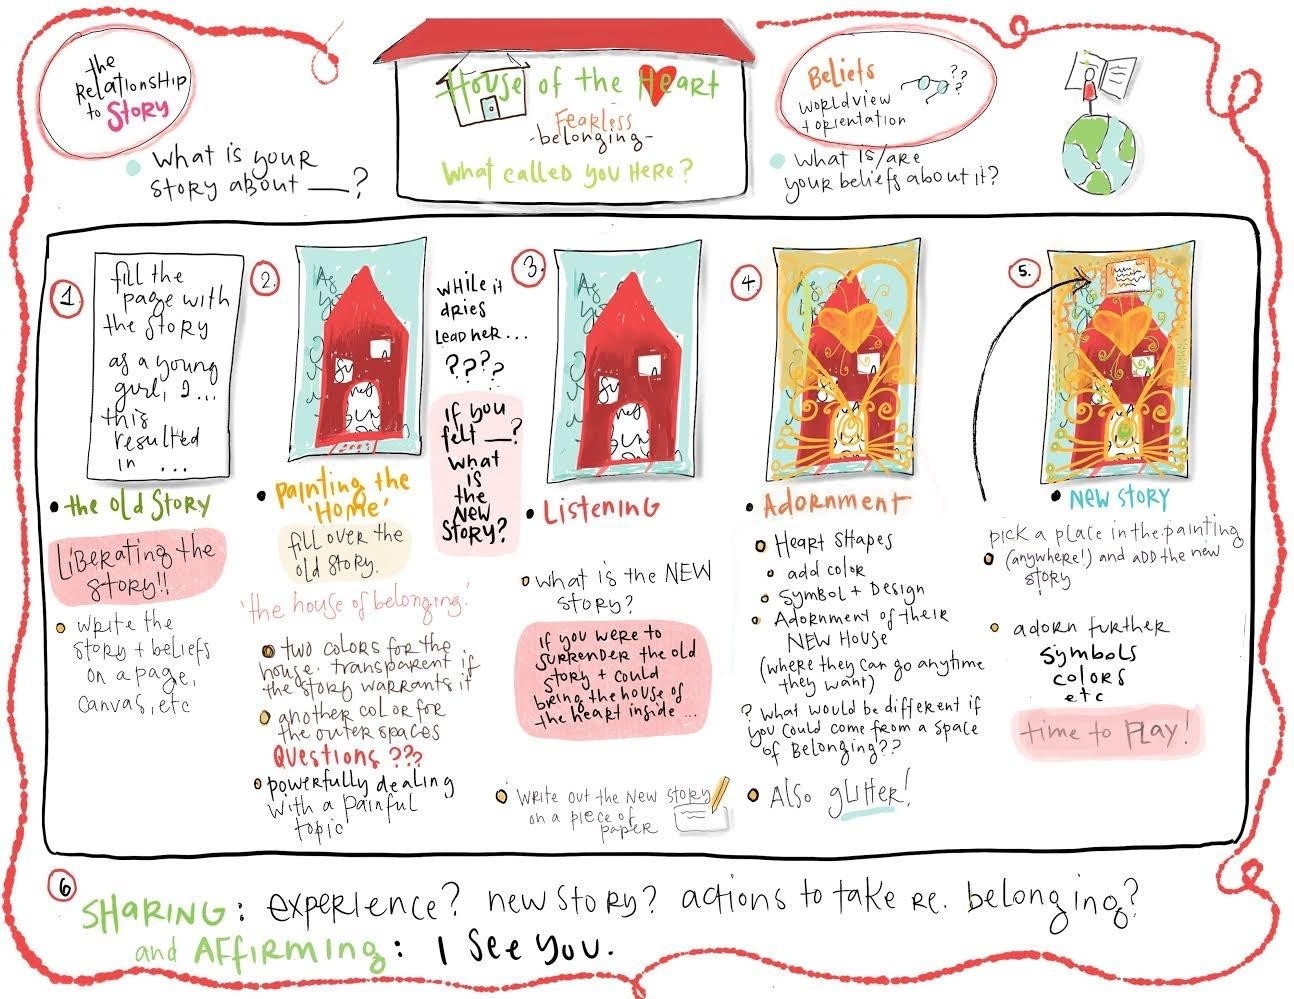 the
Relationship
to Story
What is your
story about ___?
House of the Heart
Fearless
-belonging-
What called you Here?
Beliefs
worldview
+ orientation
??
??
What is/are
your beliefs about it?
1.
fill the
page with
the story
as a young
girl, I...
this
resulted
in ...
• the old Story
Liberating the
story!!
write the
story + beliefs
on a page,
canvas, etc
2.
As
yo
• painting the
'Home'
fill over the
old story.
'the house of belonging.'
two colors for the
house. transparent if
the story warrants it
another color for
the outer spaces
Questions ???
powerfully dealing
with a painful
topic
while it
dries
lead her...
????
if you
felt __?
what
is
the
new
story?
3.
As
yo
• Listening
what is the NEW
story?
if you were to
surrender the old
story + could
bring the house of
the heart inside...
write out the new story
on a piece of
paper
4.
• Adornment
Heart shapes
add color
symbol + Design
Adornment of their
NEW House
(where they can go anytime
they want)
? what would be different if
you could come from a space
of Belonging??
Also glitter!
5.
• New story
pick a place in the painting
(anywhere!) and add the new
story
adorn further
symbols
colors
etc
time to play!
6
Sharing: experience? new story? actions to take re. belonging?
and Affirming: I see you.